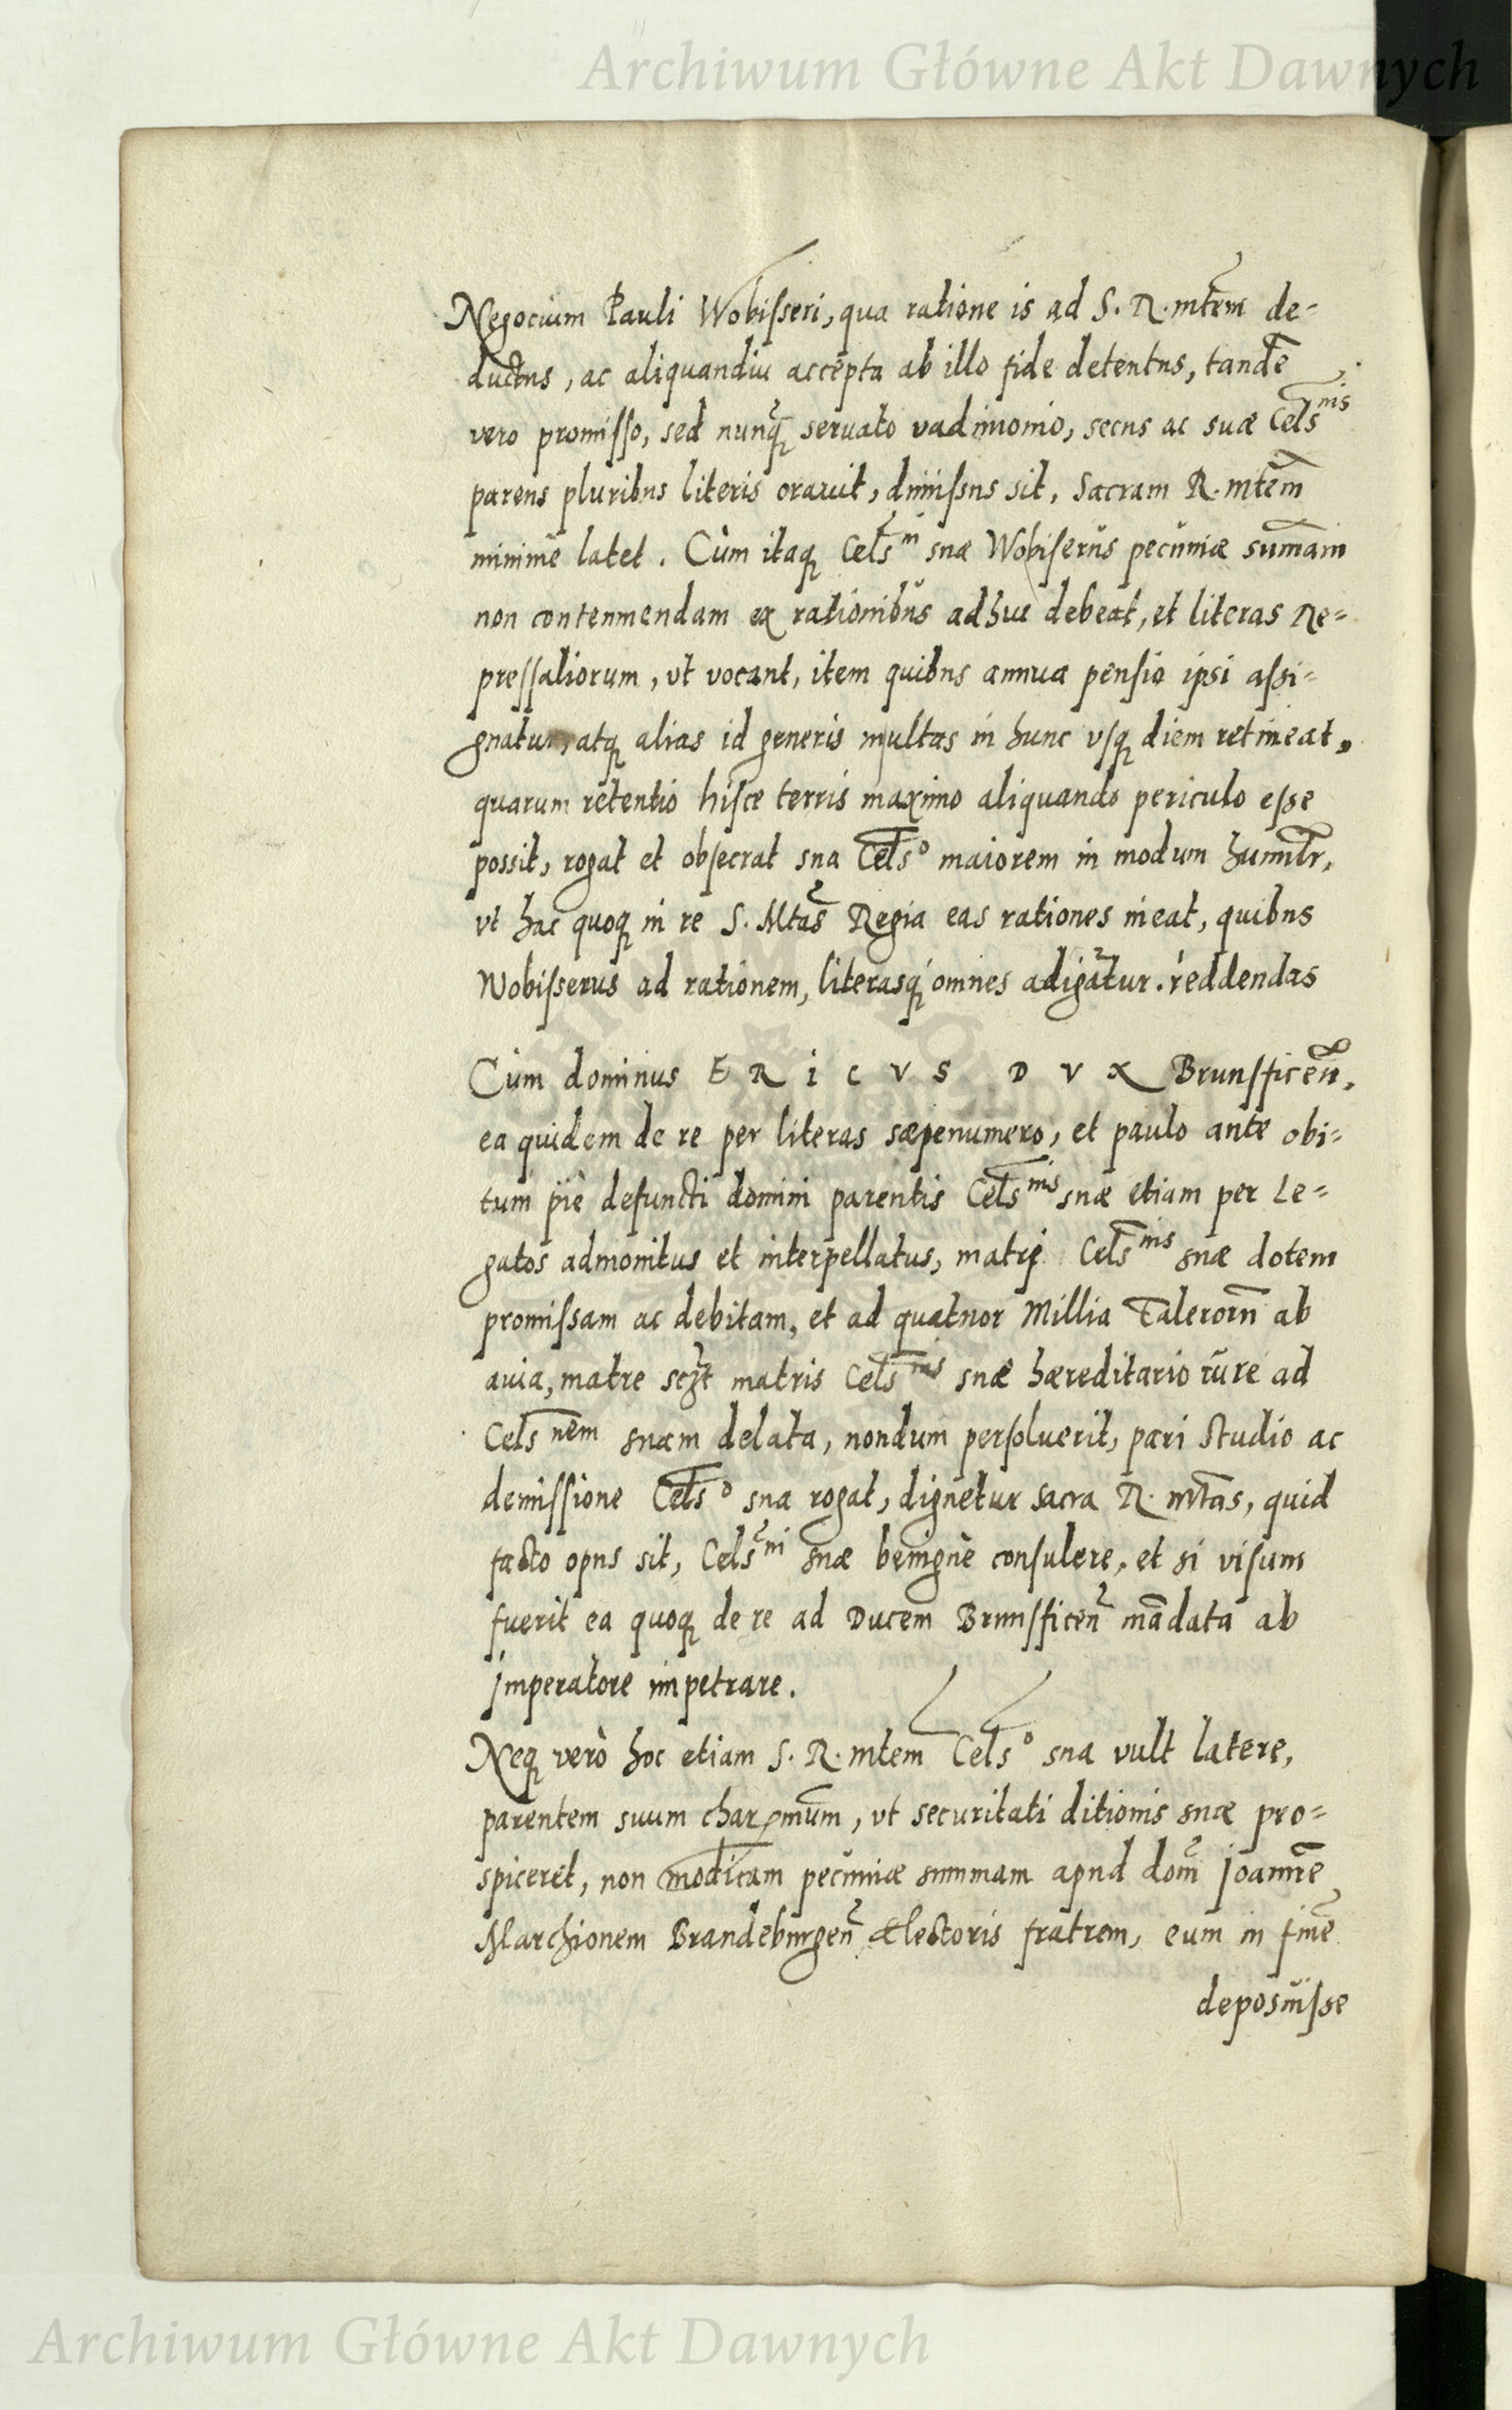 Archiwum Główne Akt Dawnych
Negocium Pauli Wobisseri, qua ratione is ad S. R. mtem de=
ductus, ac aliquandiu accepta ab illo fide detentus, tandē
vero promisso, sed nunq̄ seruato vadimonio, secus ac suæ Celsnis
parens pluribus literis orauit, dimissus sit, Sacram R. mtem
minimè latet. Cùm itaq Celsni suæ Wobiserus pecuniæ summam
non contemnendam ex rationibus adhuc debeat, et literas Re=
pressaliorum, vt vocant, item quibus annua pensio ipsi assi=
gnatur, atq alias id generis multas in hunc vsq diem retineat,
quarum retentio hisce terris maximo aliquando periculo esse
possit, rogat et obsecrat sua Celso maiorem in modum humilr,
vt hac quoq in re S. Mtas Regia eas rationes ineat, quibus
Wobisserus ad rationem, literasq omnes adigatur reddendas
Cùm dominus ERICVS DVX Brunsficen̄,
ea quidem de re per literas sæpenumero, et paulo ante obi=
tum piè defuncti domini parentis Celsnis suæ etiam per Le=
gatos admonitus et interpellatus, matri Celsnis suæ dotem
promissam ac debitam, et ad quatuor Millia Talerorū ab
auia, matre sczt matris Celsnis suæ hæreditario iure ad
Celsnem suam delata, nondum persoluerit, pari studio ac
demissione Celso sua rogat, dignetur sacra R. mtas, quid
facto opus sit, Celsni suæ benignè consulere, et si visum
fuerit ea quoq de re ad Ducem Brunsficen̄ mādata ab
Imperatore impetrare.
Neq verò hoc etiam S. R. mtem Celso sua vult latere,
parentem suum charmum, vt securitati ditionis suæ pro=
spiceret, non modicam pecuniæ summam apud dom̄ Joannē
Marchionem Brandeburgen̄ Electoris fratrem, eum in finē
deposuisse
Archiwum Główne Akt Dawnych